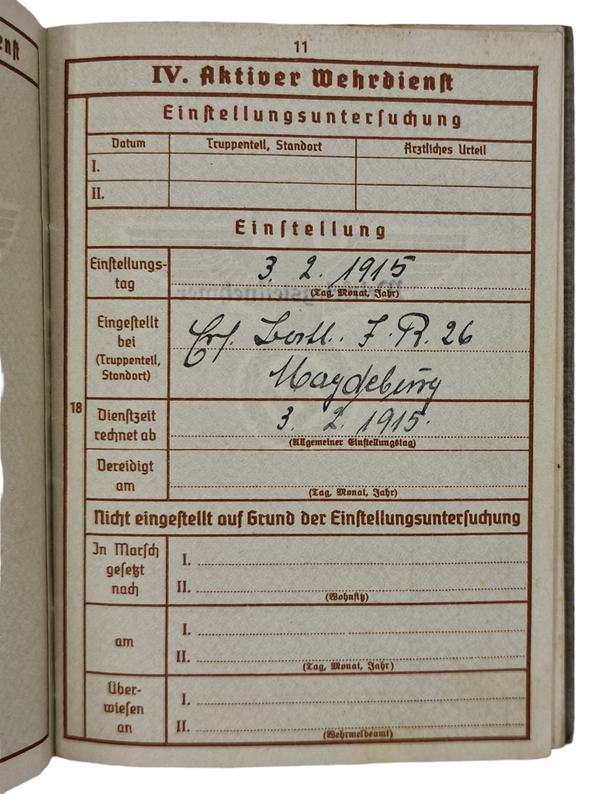 enst
11
IV. Aktiver Wehrdienst
Einstellungsuntersuchung
Datum Truppenteil, Standort Ärztliches Urteil
I.
II.
Einstellung
Einstellungs-
tag
3. 2. 1915
(Tag, Monat, Jahr)
Eingestellt
bei
(Truppenteil,
Standort)
Ers. Batl. J. R. 26
Magdeburg
18
Dienstzeit
rechnet ab
3. 2. 1915.
(Allgemeiner Einstellungstag)
Vereidigt
am
(Tag, Monat, Jahr)
Nicht eingestellt auf Grund der Einstellungsuntersuchung
In Marsch
gesetzt
nach
I.
II.
(Wohnsitz)
am
I.
II.
(Tag, Monat, Jahr)
Über-
wiesen
an
I.
II.
(Wehrmeldeamt)